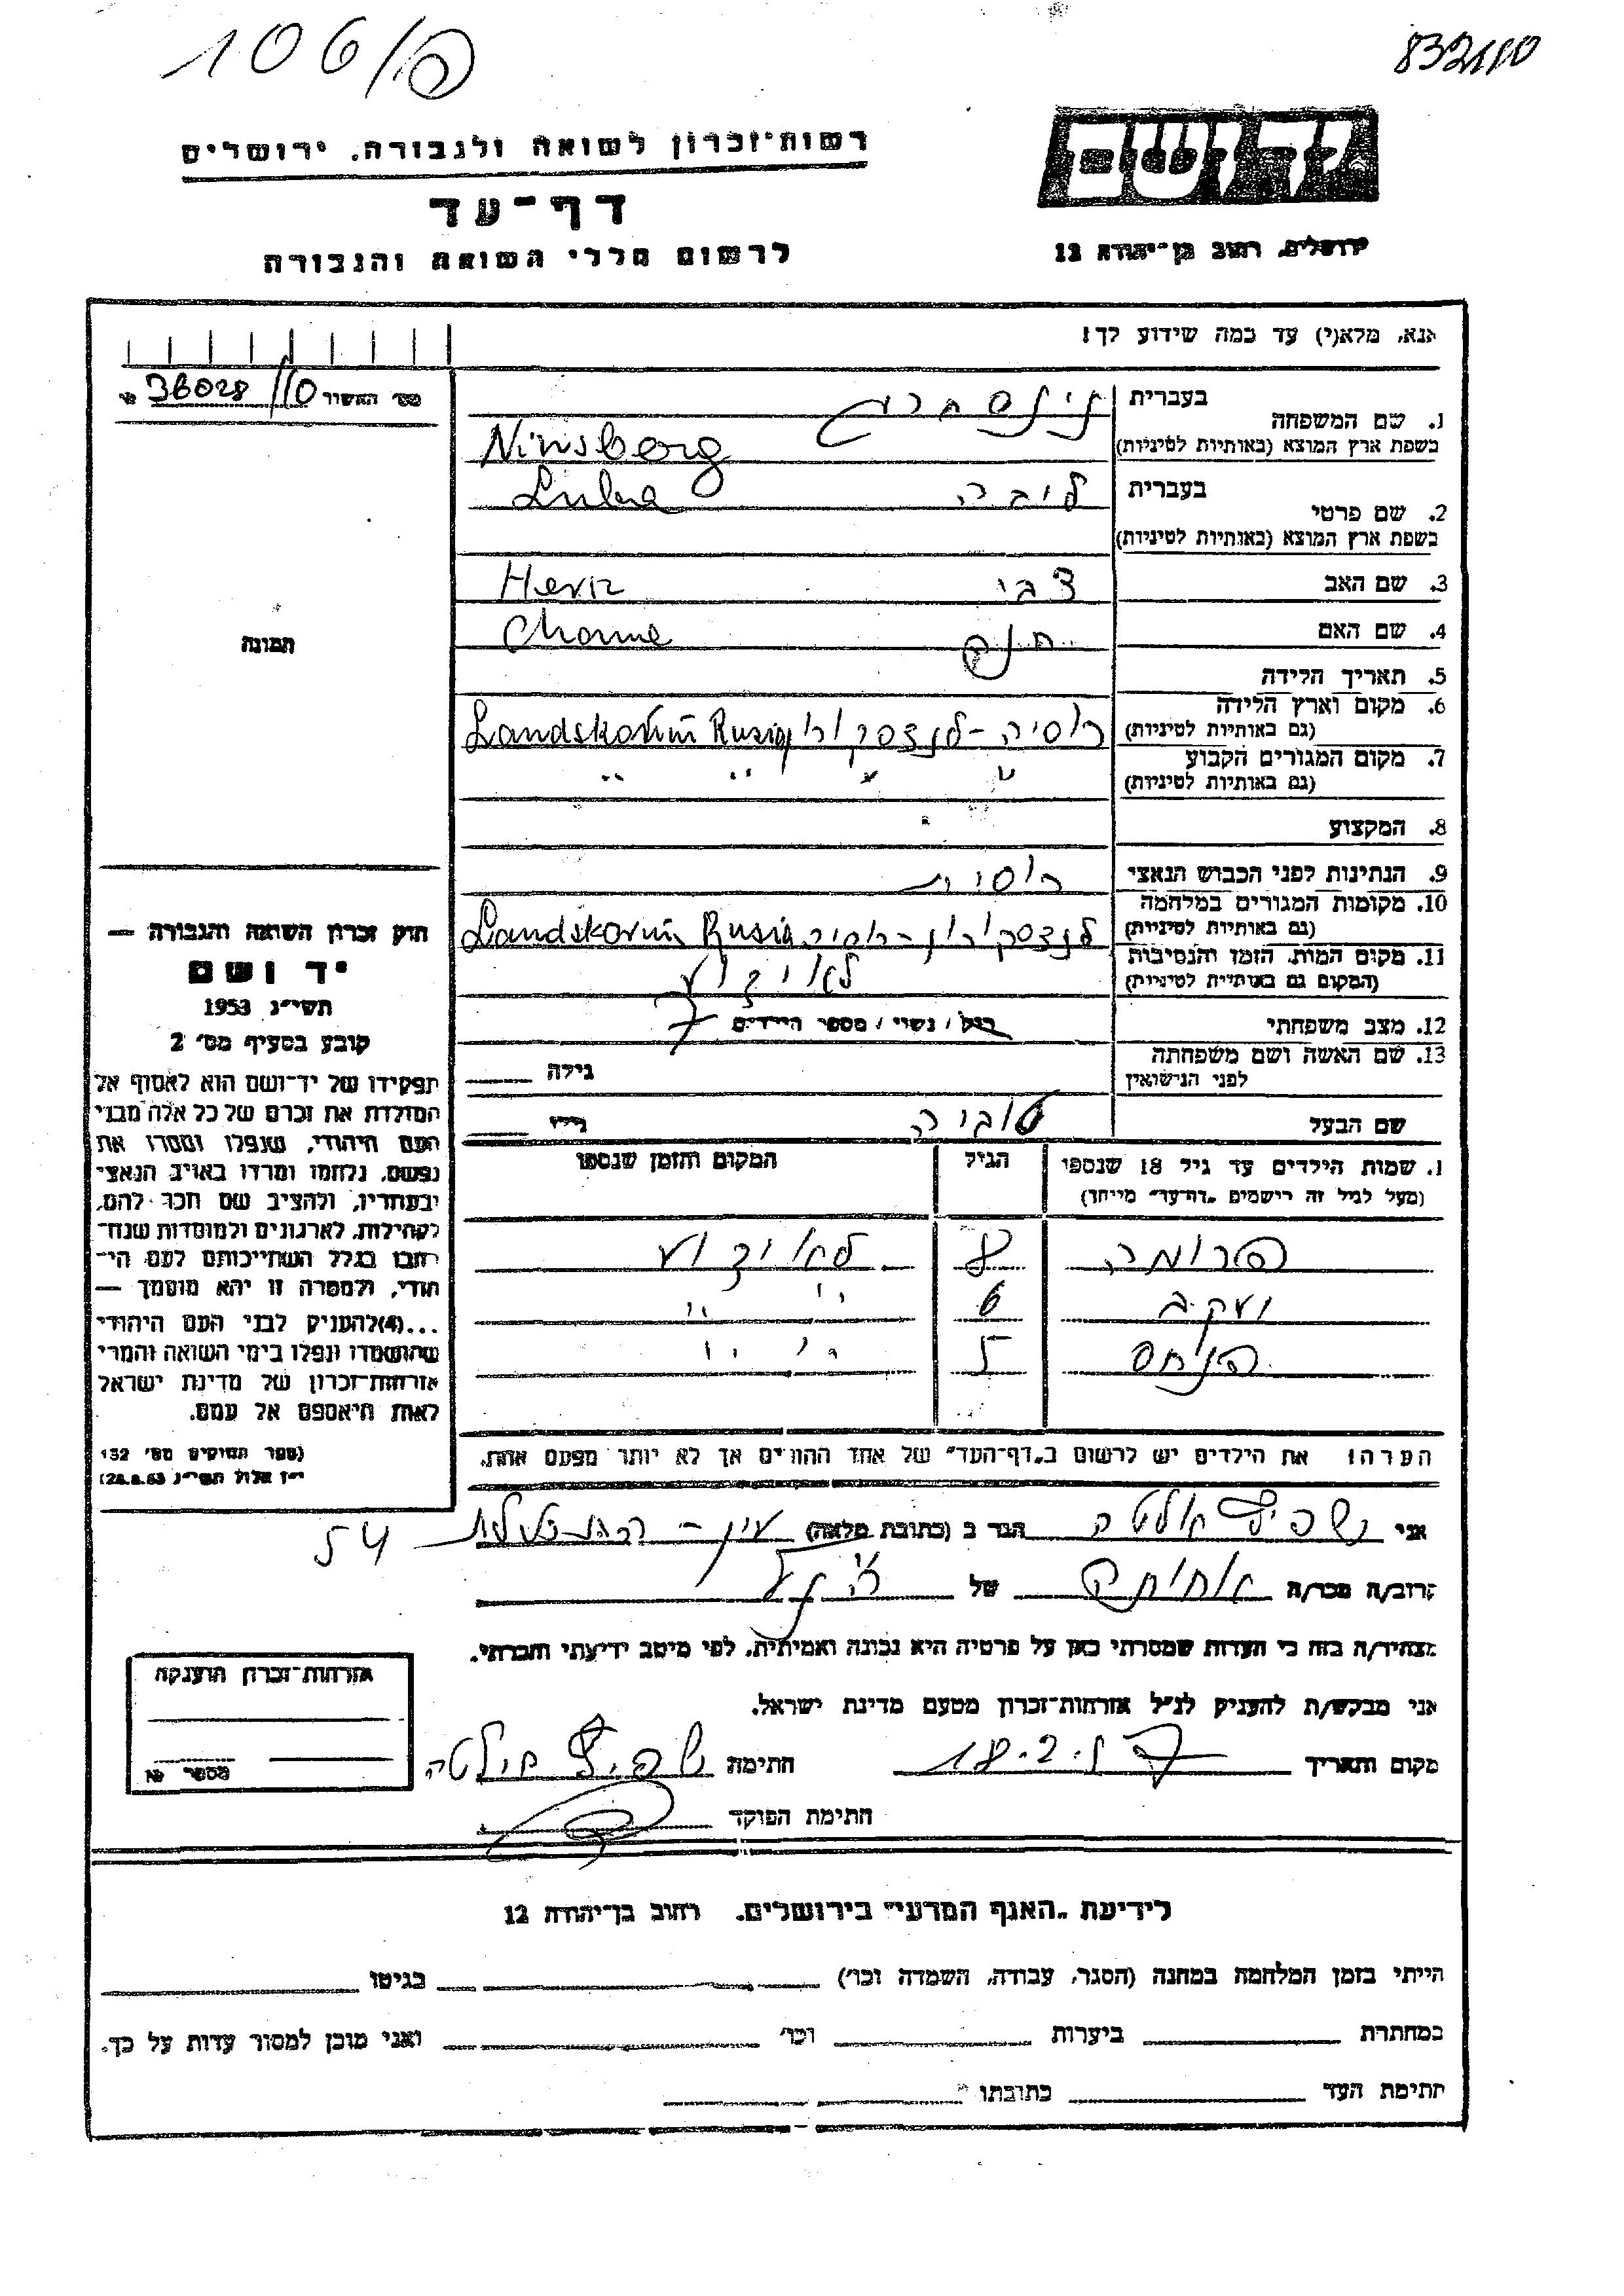 106/פ
832110
רשות-זכרון לשואה ולגבורה, ירושלים
יד ושם
דף-עד
לרשום חללי השואה והגבורה
ירושלים, רחוב בן-יהודה 12
אנא, מלא(י) עד כמה שידוע לך!
מס' האשור № 36028/110
1. שם המשפחה בעברית נינסברג
בשפת ארץ המוצא (באותיות לטיניות) Ninsberg
2. שם פרטי בעברית ליבה Luba
בשפת ארץ המוצא (באותיות לטיניות)
3. שם האב צבי Hern
4. שם האם חנה Channe
5. תאריך הלידה
6. מקום וארץ הלידה רוסיה - לנצקורון Landskorun Rusia
(גם באותיות לטיניות)
7. מקום המגורים הקבוע " " " "
(גם באותיות לטיניות)
8. המקצוע
9. הנתינות לפני הכבוש הנאצי רוסית
10. מקומות המגורים במלחמה לנצקורון - רוסיה Landskorun Rusia
(גם באותיות לטיניות)
11. מקום המות, הזמן והנסיבות לא ידוע
(המקום גם באותיות לטיניות)
12. מצב משפחתי רוק / נשוי / מספר הילדים
13. שם האשה ושם משפחתה גילה
לפני הנישואין
שם הבעל טוביה גילו
תמונה
חוק זכרון השואה והגבורה —
יד ושם
תשי"ג 1953
קובע בסעיף מס' 2
תפקידו של יד-ושם הוא לאסוף אל
המולדת את זכרם של כל אלה מבני
העם היהודי, שנפלו ומסרו את
נפשם, נלחמו ומרדו באויב הנאצי
ובעוזריו, ולהציב שם וזכר להם,
לקהילות, לארגונים ולמוסדות שנח-
רבו בגלל השתייכותם לעם הי-
הודי, ולמטרה זו יהא מוסמך —
...(4)להעניק לבני העם היהודי
שהושמדו ונפלו בימי השואה והמרי
אזרחות-זכרון של מדינת ישראל
לאות היאספם אל עמם.
(ספר החוקים מס' 132
י"ז אלול תשי"ג 28.8.53)
שמות הילדים עד גיל 18 שנספו הגיל המקום והזמן שנספו
(מעל לגיל זה רישמים „דף-עד" מייחד)
פרומה 8 לא ידוע
יעקב 6 " "
פנחס 5 " "
הערה! את הילדים יש לרשום ב„דף-העד" של אחד ההורים אך לא יותר מפעם אחת.
אני הגר ב (כתובת מלאה) עין - 54
קרוב/ה מכר/ה אחותה של הנ"ל
מצהיר/ה בזה כי העדות שמסרתי כאן על פרטיה היא נכונה ואמיתית, לפי מיטב ידיעתי והכרתי.
אני מבקש/ת להעניק לנ"ל אזרחות-זכרון מטעם מדינת ישראל.
מקום ותאריך 18.2.57 חתימת
חתימת הפוקד
אזרחות-זכרון הוענקה
מספר №
לידיעת „האגף המדעי" בירושלים, רחוב בן-יהודה 12
הייתי בזמן המלחמה במחנה (הסגר, עבודה, השמדה וכו') בגיטו
במחתרת ביערות וכו' ואני מוכן למסור עדות על כך.
חתימת העד כתובתו